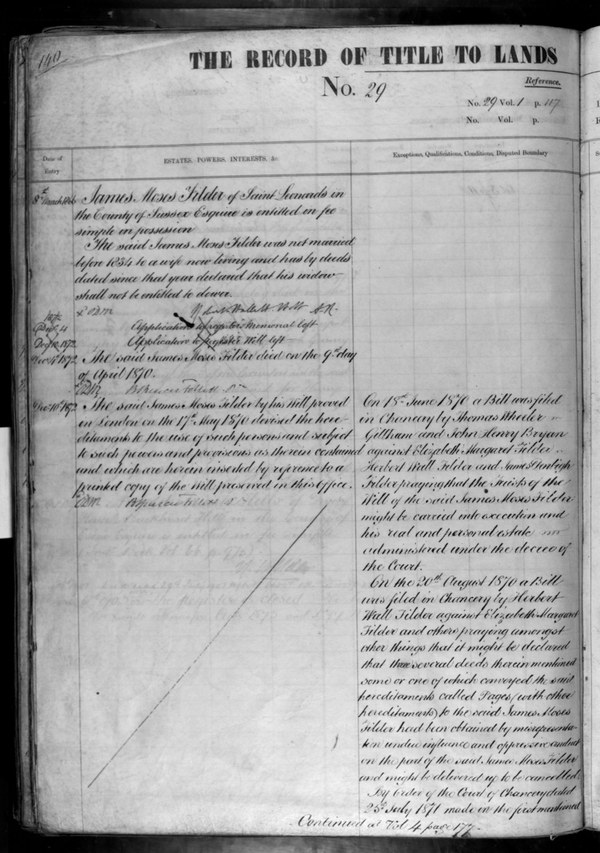 140
THE RECORD OF TITLE TO LANDS
No. 29
Reference.
No. 29 Vol. 1 p. 117
No. Vol. p.
Date of Entry
ESTATES, POWERS, INTERESTS, &c
Exceptions, Qualifications, Conditions, Disputed Boundary
8th March 1866 James Moses Tilder of Saint Leonards in
the County of Sussex Esquire is entitled in fee
simple in possession
The said James Moses Tilder was not married
before 1834 to a wife now living and has by deeds
dated since that year declared that his widow
shall not be entitled to dower.
Application to register memorial left
Application to register Will left
The said James Moses Tilder died on the 9th day
of April 1870.
The said James Moses Tilder by his Will proved
in London on the 17th May 1870 devised the here-
ditaments to the use of such persons and subject
to such powers and provisions as therein contained
and which are herein inserted by reference to a
printed copy of the Will preserved in this Office.
On 18th June 1870 a Bill was filed
in Chancery by Thomas Wheeler
Gillham and John Henry Bryan
against Elizabeth Margaret Tilder
Herbert Will Tilder and
Tilder praying that the Trusts of the
Will of the said James Moses Tilder
might be carried into execution and
his real and personal estate
administered under the decree of
the Court.
On the 20th August 1870 a Bill
was filed in Chancery by Herbert
Will Tilder against Elizabeth Margaret
Tilder and others praying amongst
other things that it might be declared
that three several deeds therein mentioned
some or one of which conveyed the said
hereditaments called Pages (with other
hereditaments) to the said James Moses
Tilder had been obtained by misrepresenta-
tion undue influence and oppressive conduct
on the part of the said James Moses Tilder
and might be delivered up to be cancelled.
By Order of the Court of Chancery dated
25th July 1871 made in the first mentioned
Continued at Vol 4 page 177.